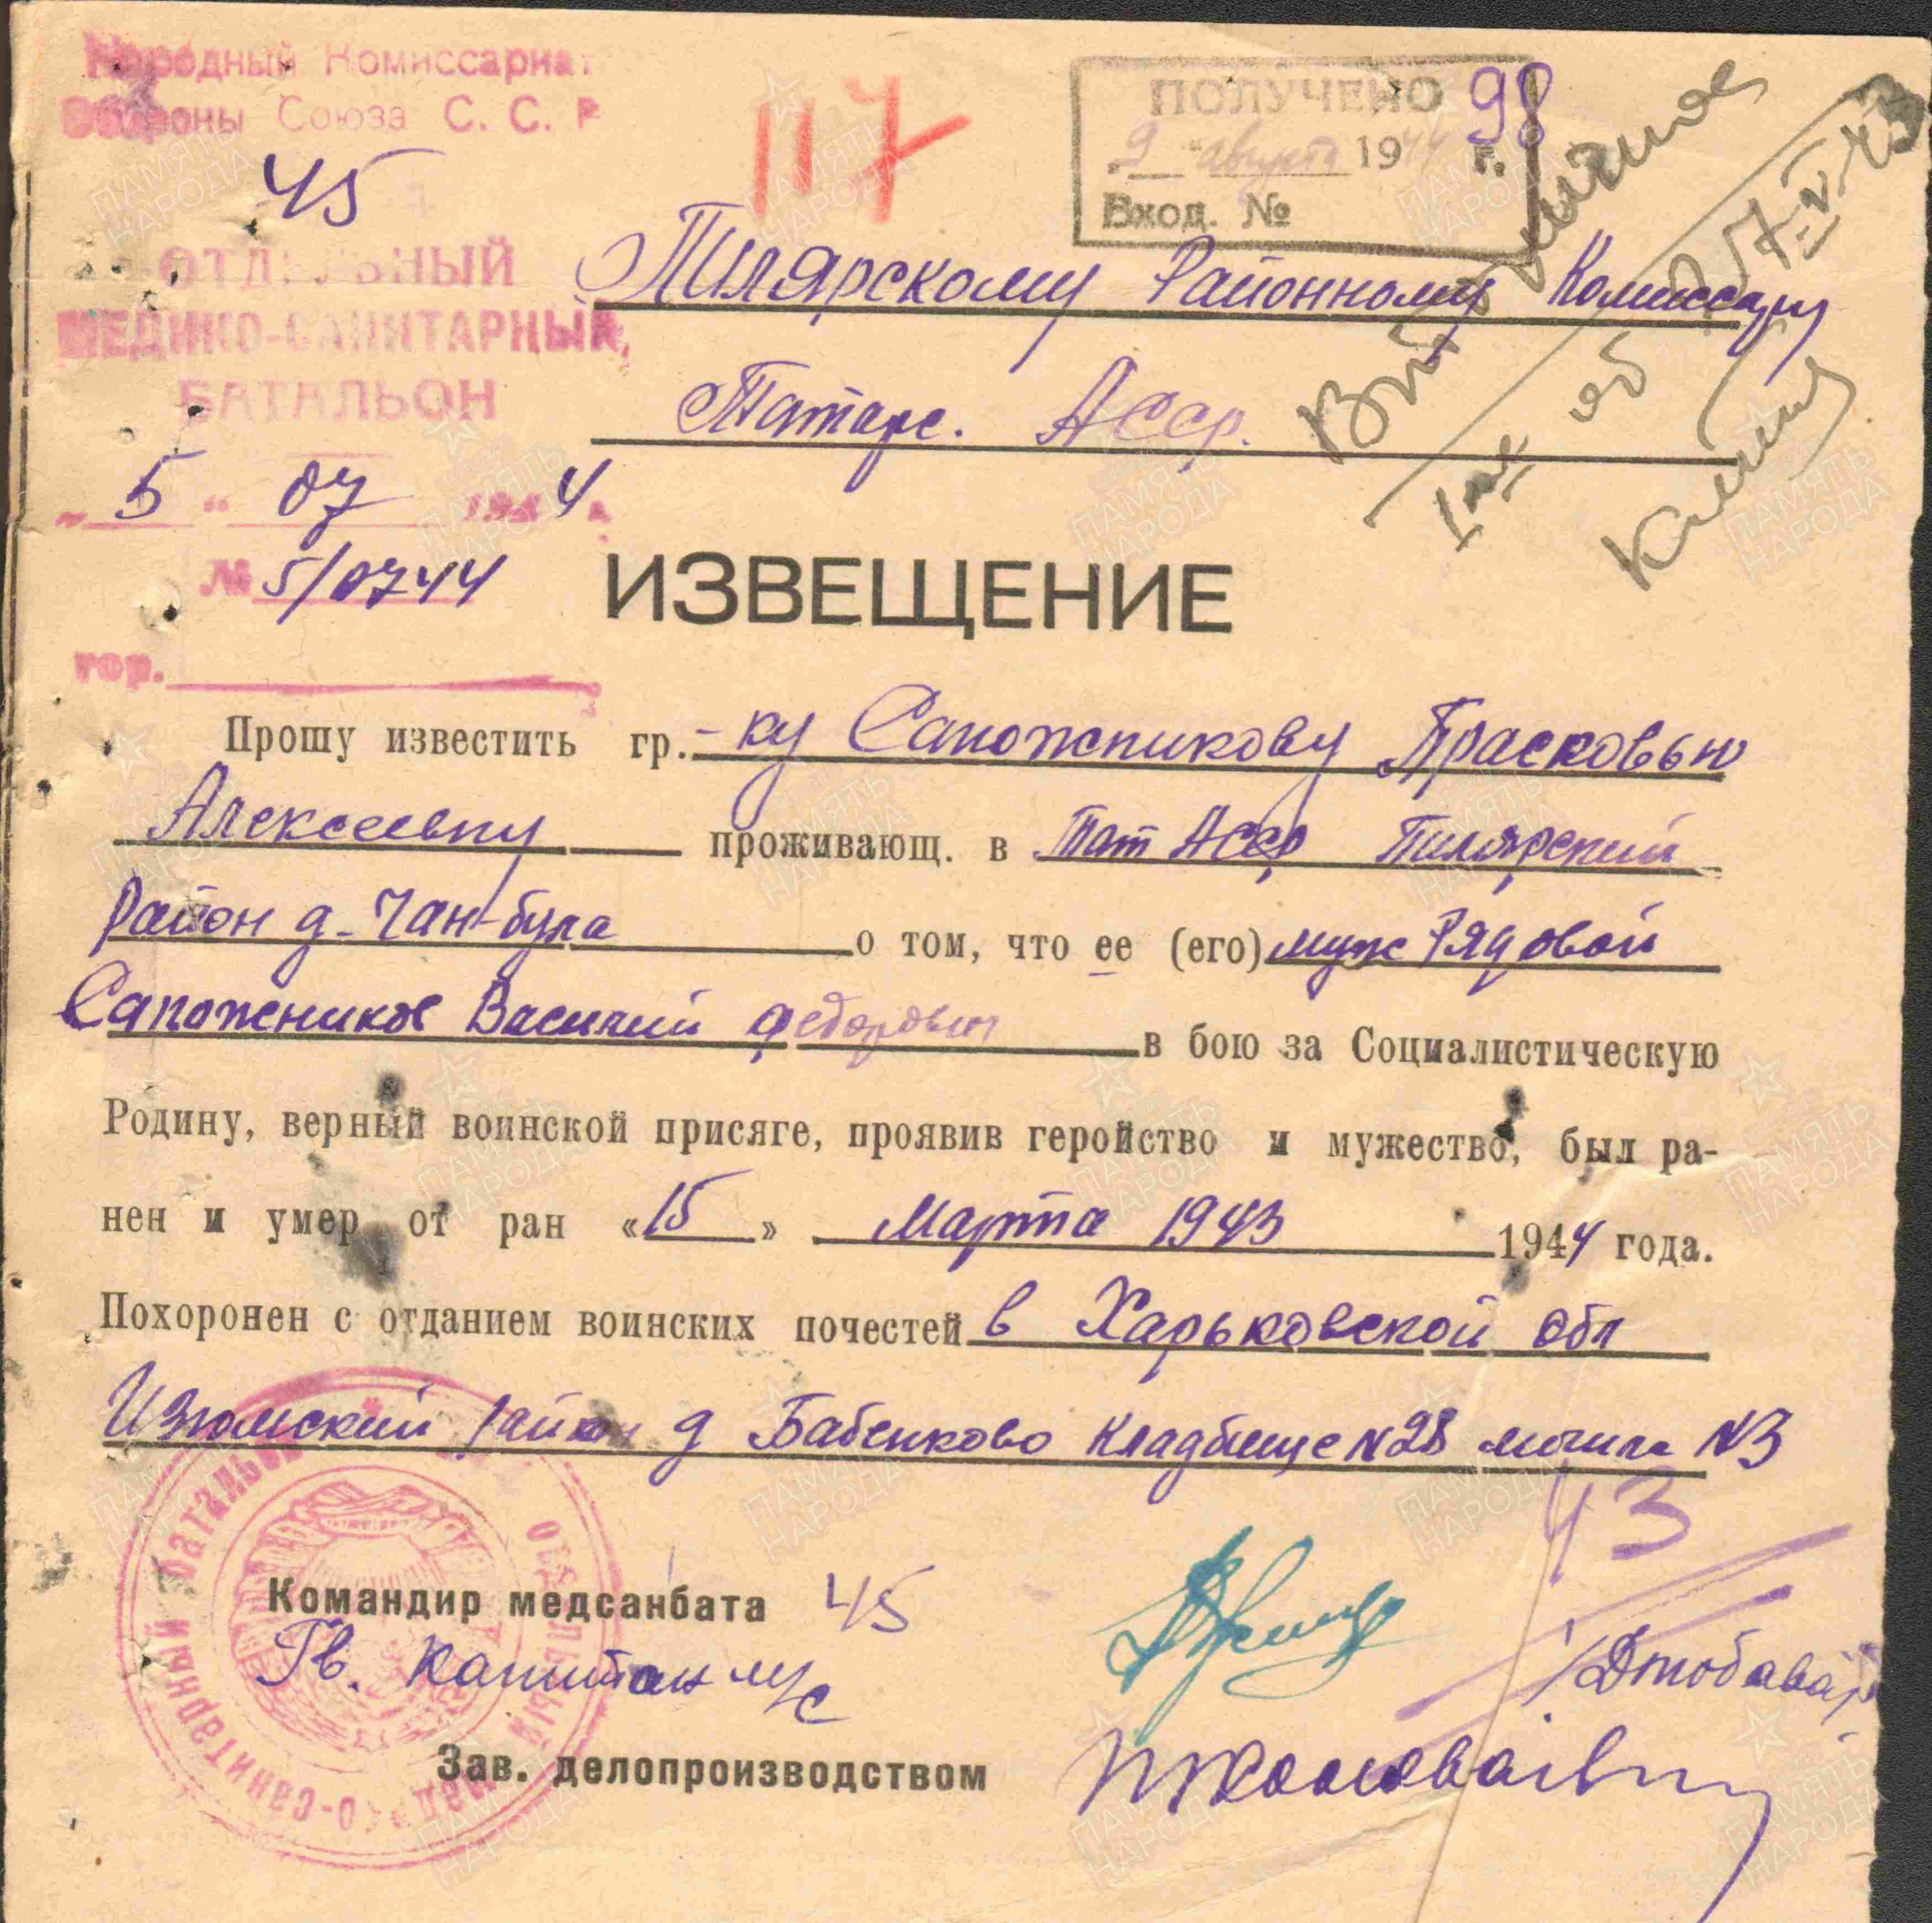 Народный Комиссариат
Обороны Союза С. С. Р
45
ОТДЕЛЬНЫЙ
МЕДИКО-САНИТАРНЫЙ
БАТАЛЬОН
„ 5 “ 07 1944 г.
№ 5/0744
гор.
117
98
ПОЛУЧЕНО
„ 9 “ августа 1944 г.
Вход. №
Пилярскому Районному Комиссару
Татарс. АССр.
ИЗВЕЩЕНИЕ
Прошу известить гр.-ку Сапожникову Прасковью
Алексеевну проживающ. в Тат АССР Пилярский
Район д-Чан-була о том, что ее (его) муж Рядовой
Сапожников Василий Федорович в бою за Социалистическую
Родину, верный воинской присяге, проявив геройство и мужество, был ра-
нен и умер от ран «15» Марта 1943 1944 года.
Похоронен с отданием воинских почестей в Харьковской обл
Изюмский район д Бабенково кладбище N28 могила N3
43
Командир медсанбата 45
Гв. Капитан м/с
Зав. делопроизводством
Отдельный медико-санитарный батальон
ПАМЯТЬ НАРОДА